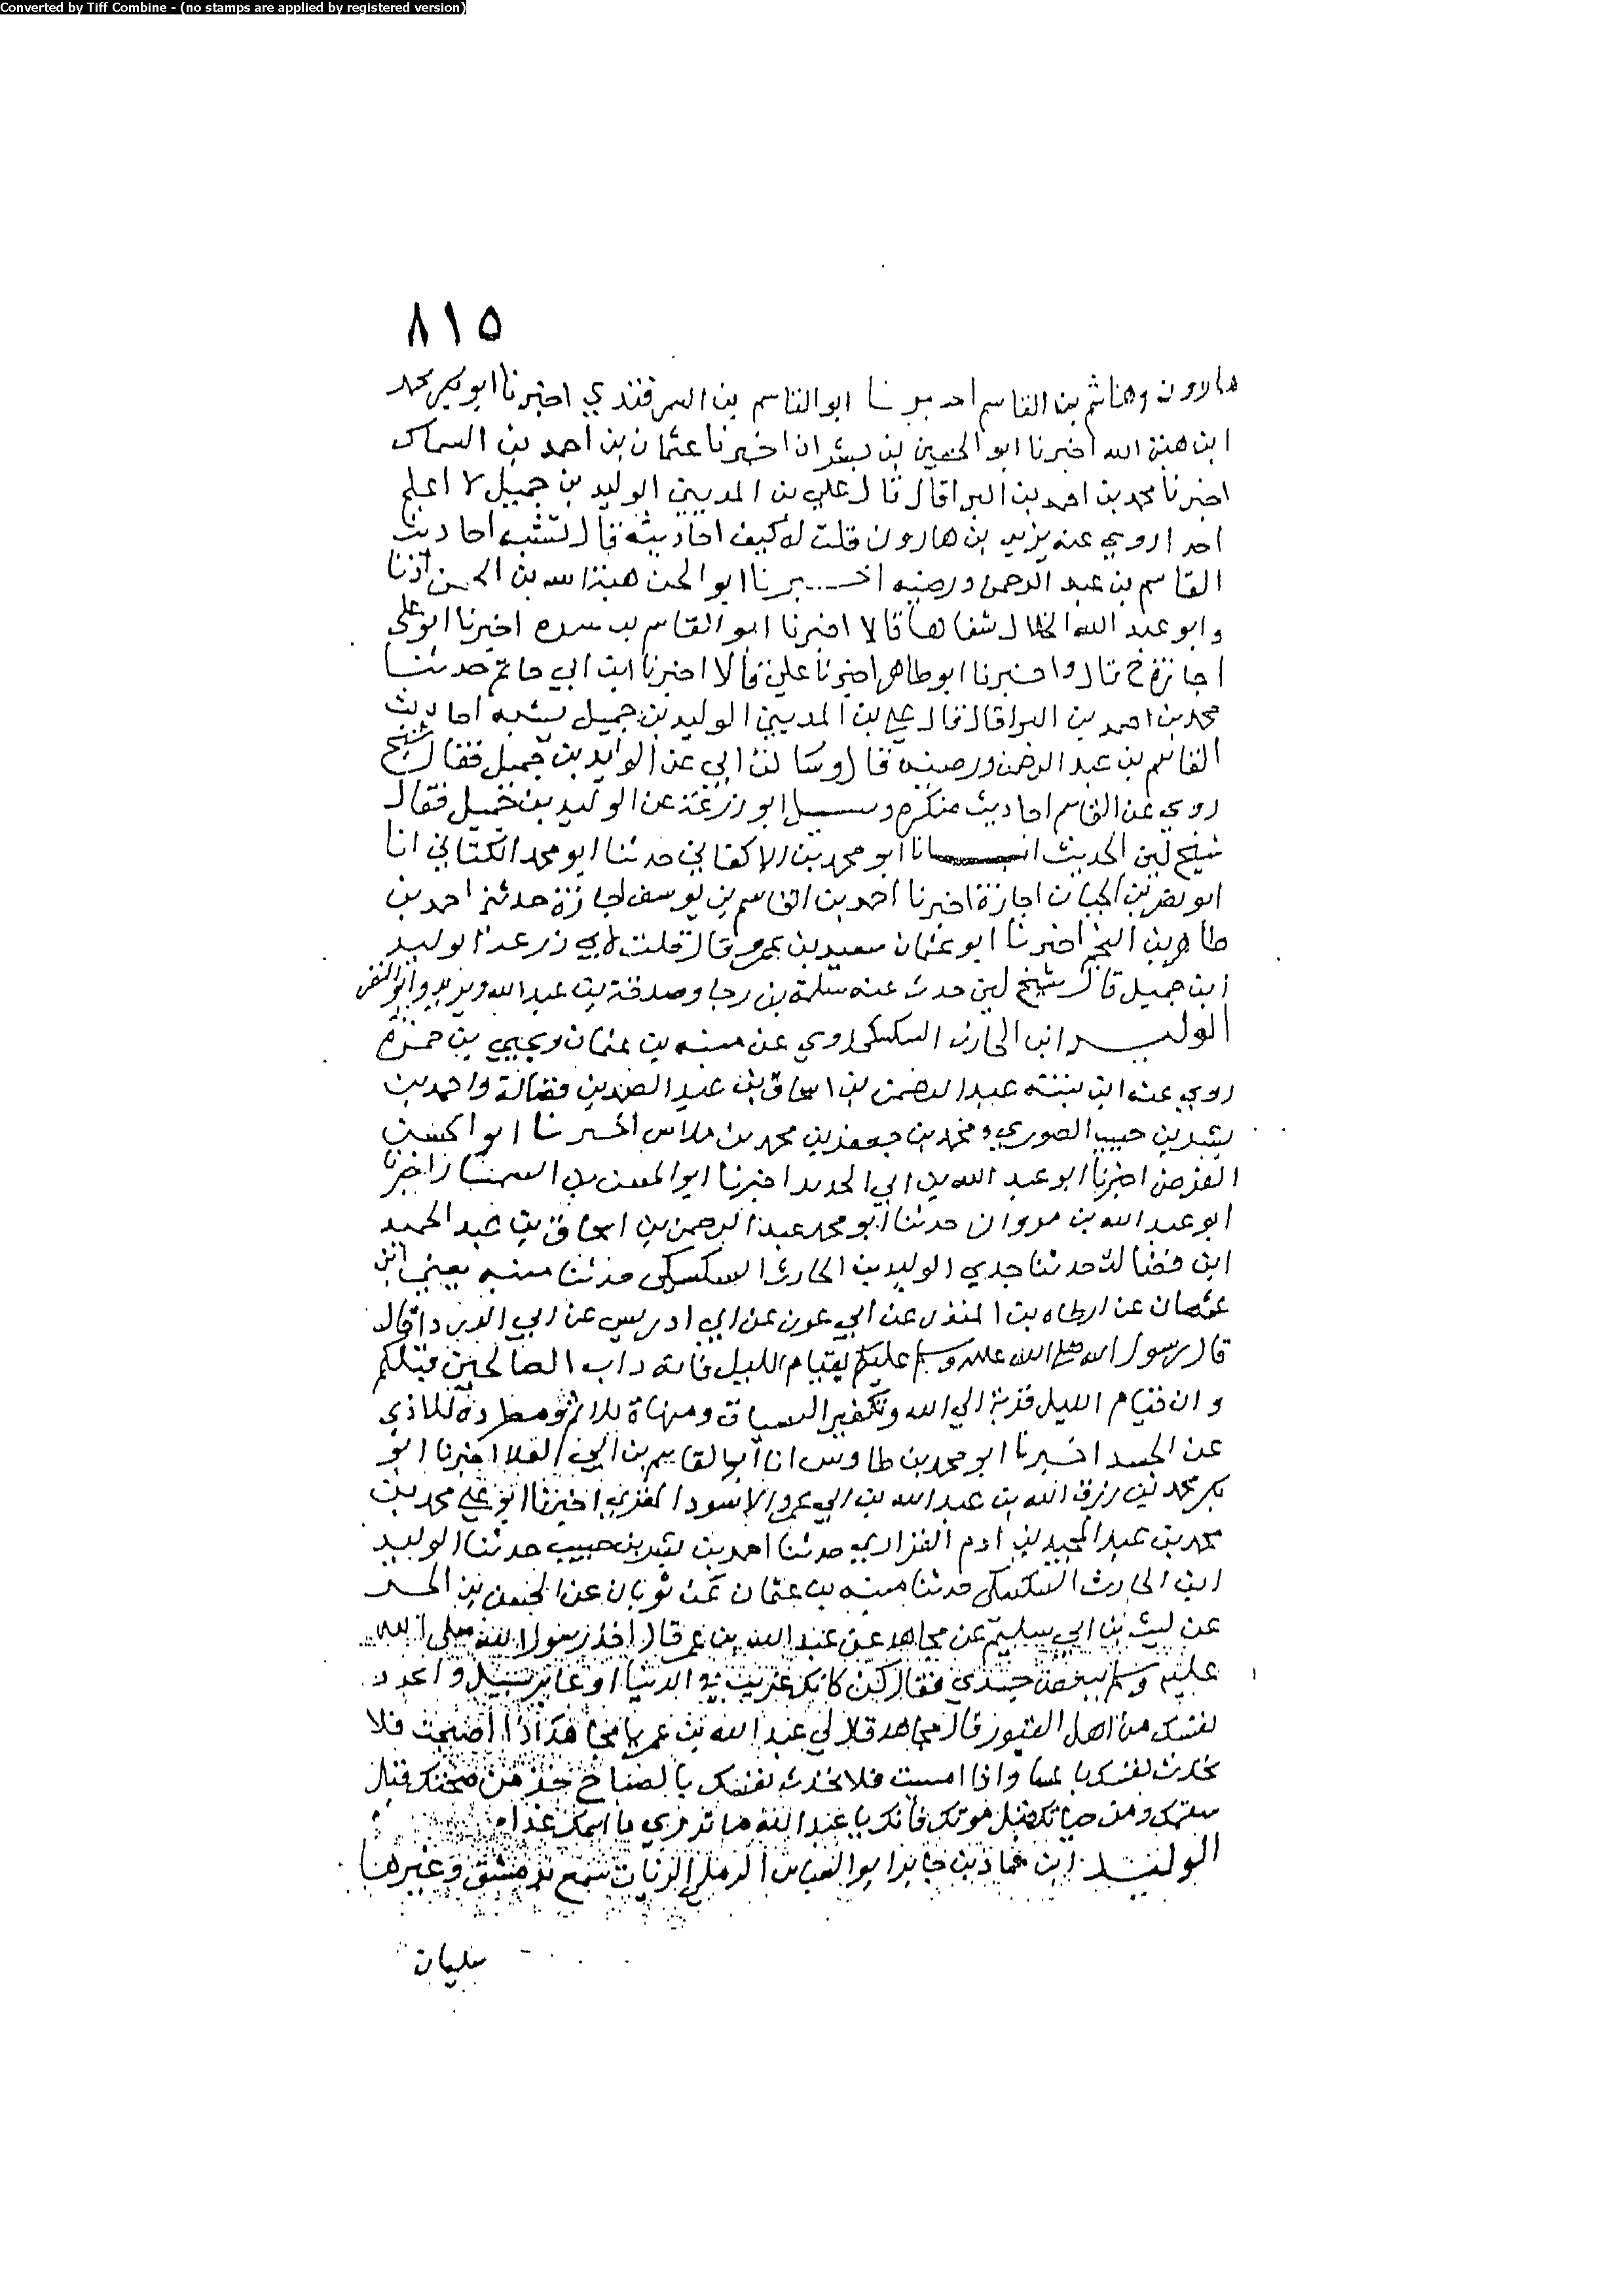 Converted by Tiff Combine - (no stamps are applied by registered version)
٨١٥
هارون وهاشم بن القاسم اخبرنا ابو القاسم بن السمرقندي اخبرنا ابو بكر محمد
ابن هبة الله اخبرنا ابو الحسين بن بشران اخبرنا عثمان بن احمد بن السماك
اخبرنا محمد بن احمد بن البرا قال قال علي بن المديني الوليد بن جميل لا اعلم
احدا روي عنه يزيد بن هارون قلت له كيف احاديثه قال تشبه احاديث
القاسم بن عبد الرحمن ورضيه اخــبرنا ابو الحسن هبة الله بن الحسن اذنا
وابو عبد الله الخلال شفاها قالا اخبرنا ابو القاسم بن منده اخبرنا ابو علي
اجازة ح قال واخبرنا ابو طاهر اخبرنا علي قالا اخبرنا ابن ابي حاتم حدثنا
محمد بن احمد بن البرا قال قال علي بن المديني الوليد بن جميل يشبه احاديث
القاسم بن عبد الرحمن ورضيه قال وسالت ابي عن الوليد بن جميل فقال شيخ
روي عن القاسم احاديث منكره وسيل ابو زرعة عن الوليد بن جميل فقال
شيخ لين الحديث انبـانا ابو محمد بن الاكفاني حدثنا ابو محمد الكتاني انا
ابو نصر بن الجبان اجازة اخبرنا احمد بن القاسم بن يوسف اجازة حدثني احمد بن
طاهر بن النجم اخبرنا ابو عثمان سعيد بن عمرو قال قلت لابي زرعة الوليد
ابن جميل قال شيخ لين حدث عنه سلمة بن رجا وصدقة بن عبد الله ويزيد وابو النضر
الوليد ابن الحارث السكسكي روي عن منبه بن عثمان ويحيي بن حمزة
روي عنه ابن بنته عبد الرحمن بن اسحاق بن عبد الصمد بن فضالة واحمد بن
بشر بن حبيب الصوري ومحمد بن جعفر بن محمد بن ملاس اخبرنا ابو الحسن
الفرضي اخبرنا ابو عبد الله بن ابي الحديد اخبرنا ابو الحسن بن السمسار اخبرنا
ابو عبد الله بن مروان حدثنا ابو محمد عبد الرحمن بن اسحاق بن عبد الحميد
ابن فضالة حدثنا جدي الوليد بن الحارث السكسكي حدثنا منبه يعني ابن
عثمان عن ارطاه بن المنذر عن ابي عون عن ابي ادريس عن ابي الدردا قال
قال رسول الله صلى الله عليه وسلم عليكم بقيام الليل فانه داب الصالحين قبلكم
وان قيام الليل قربة الي الله وتكفير السيات ومنهاة للاثم ومطردة للاذي
عن الجسد اخبرنا ابو محمد بن طاوس انا ابو القاسم بن ابي العلا اخبرنا ابو
بكر محمد بن رزق الله بن عبد الله بن ابي عمرو الاسود المقري اخبرنا ابو علي محمد بن
محمد بن عبد الحميد بن ادم الفزاري حدثنا احمد بن بشر بن حبيب حدثنا الوليد
ابن الحارث السكسكي حدثنا منبه بن عثمان عن ثوبان عن الحسن بن الحر
عن ليث بن ابي سليم عن مجاهد عن عبد الله بن عمر قال اخذ رسول الله صلى الله
عليه وسلم ببعض جسدي فقال كن كانك غريب في الدنيا او عابر سبيل واعدد
نفسك من اهل القبور قال مجاهد قال لي عبد الله بن عمر يا مجاهد اذا اصبحت فلا
تحدث نفسك بالمسا واذا امسيت فلا تحدث نفسك بالصباح خذ من صحتك قبل
سقمك ومن حياتك قبل موتك فانك يا عبد الله ما تدري ما اسمك غدا
الوليد ابن حماد بن جابر ابو العباس الرملي الزيات سمع بدمشق وغيرها
سليمان